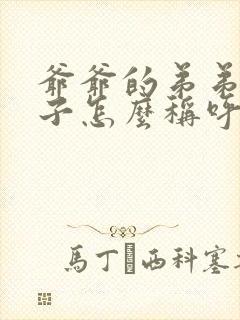 爺爺的弟弟
子怎麼稱呼
馬丁 西科塞